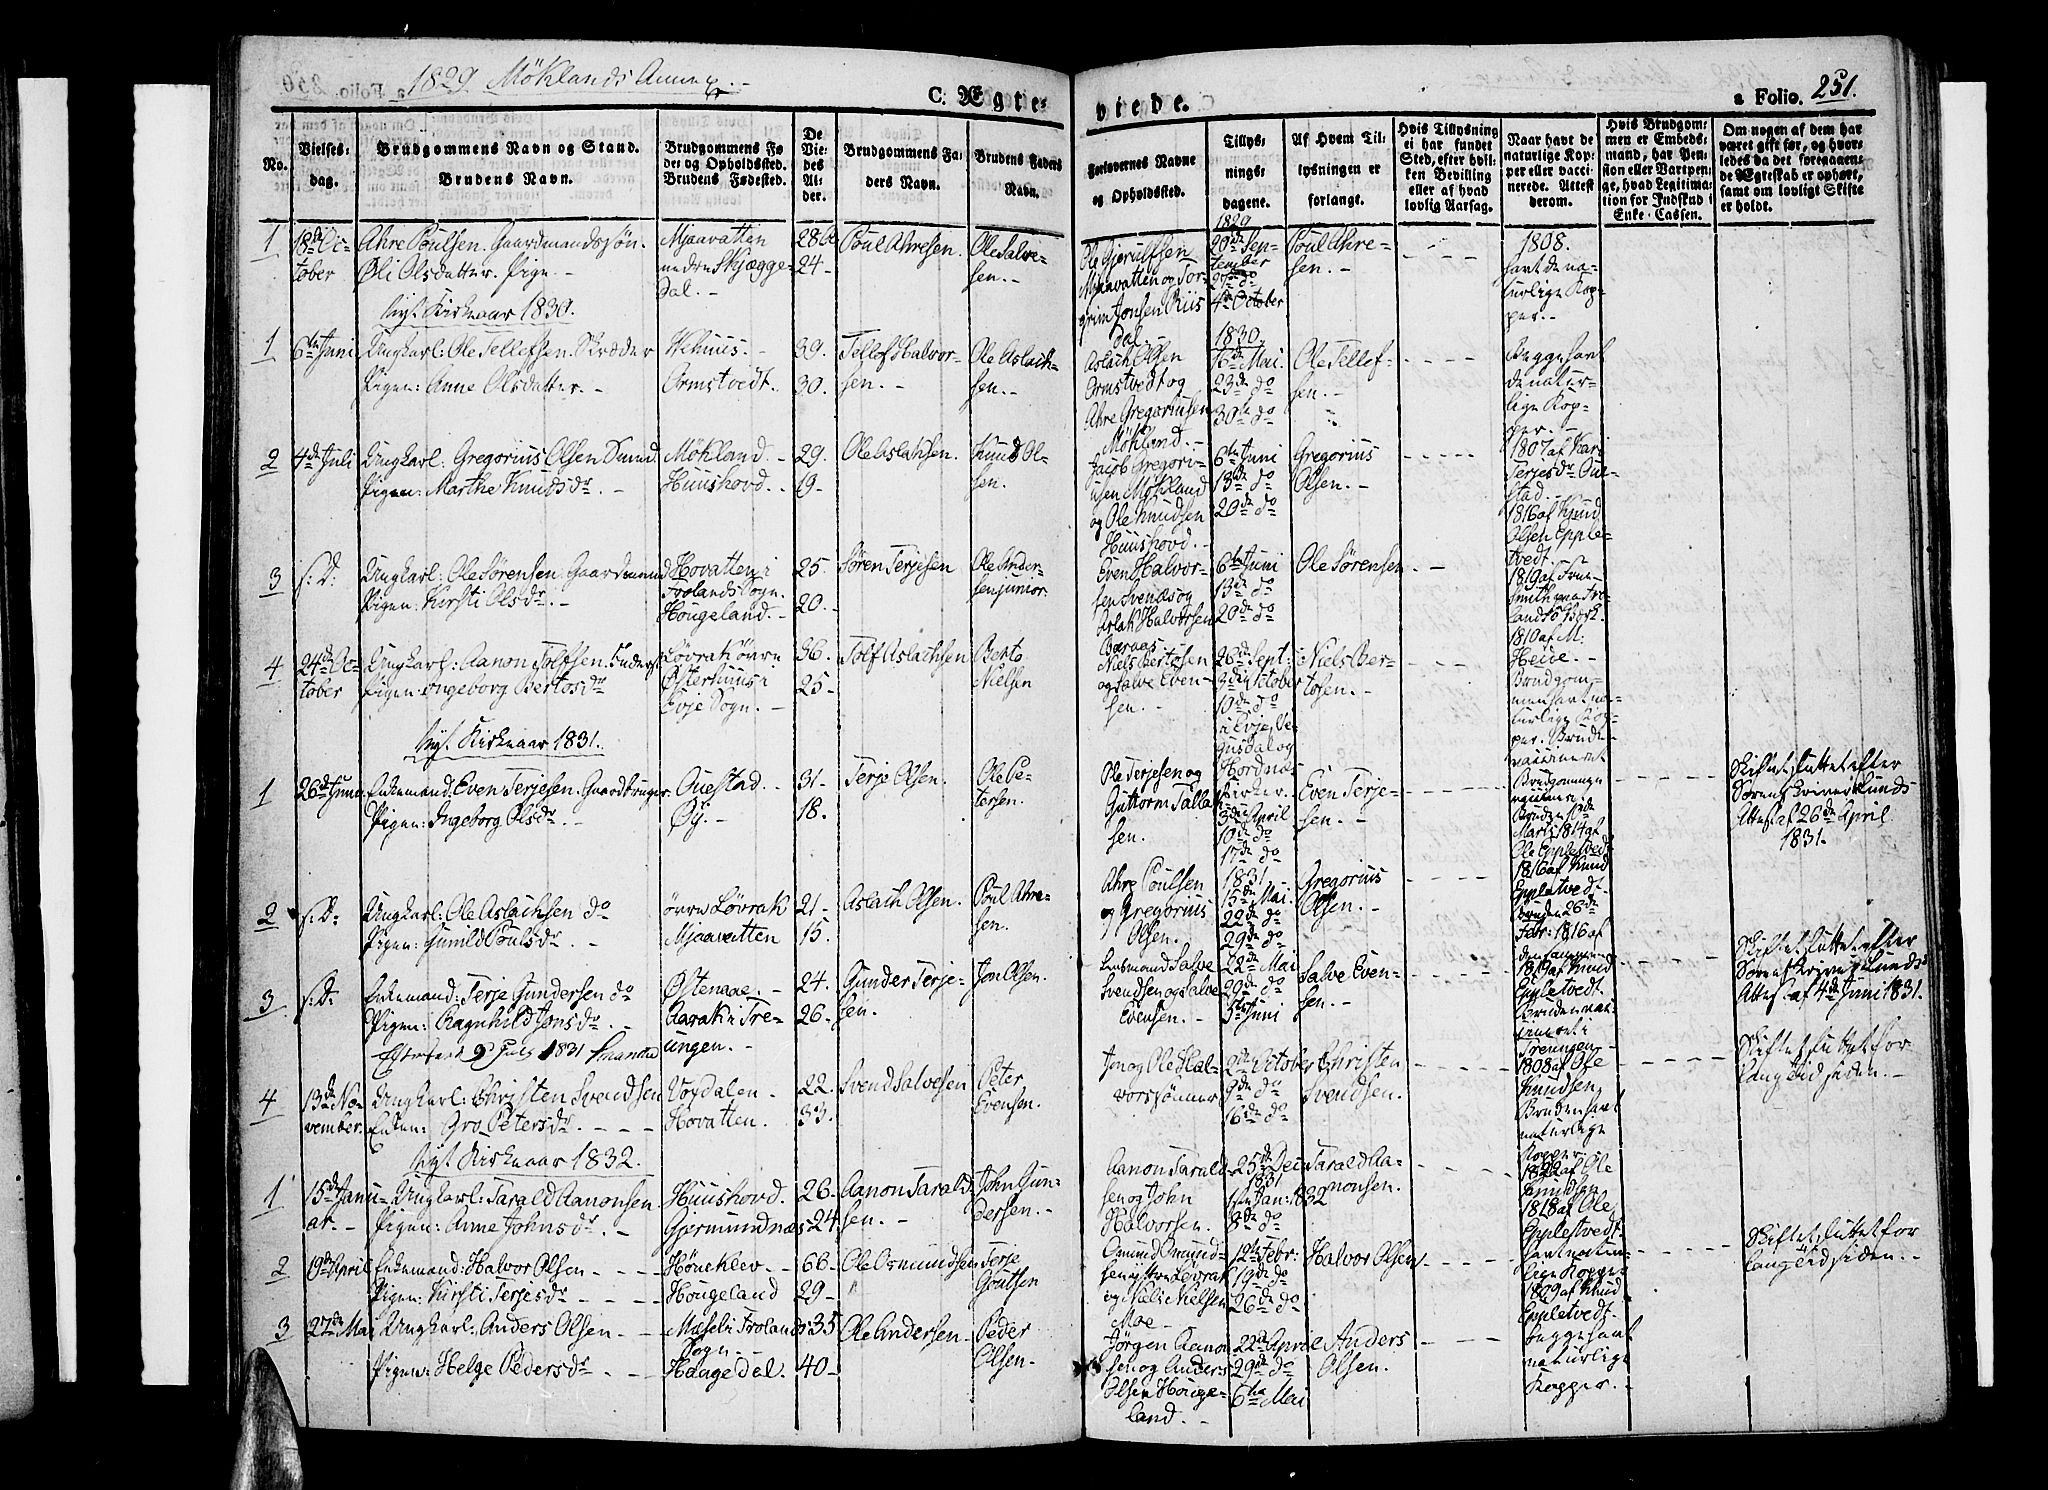 1829 Möklands Annex
C. Ægte-
viede.
a Folio. 251.
No.
Vielses-
dag.
Brudgommens Navn og Stand.
Brudens Navn.
Brudgommens Fø
de- og Opholdssted.
Brudens Fødested.
De
Vie-
des
Al-
der.
Brudgommens Fa-
ders Navn.
Brudens Faders
Navn.
Forlovernes Navne
og Opholdssted.
Tillys-
nings-
dagene.
Af Hvem Til-
lysningen er
forlangt.
Hvis Tillysning
ei har fundet
Sted, efter hvil-
ken Bevilling
eller af hvad
lovlig Aarsag.
Naar havt de
naturlige Kop-
per eller vacci-
nerede. Attest
derom.
Hvis Brudgom-
men er Embeds-
mand, har Pen-
sion eller Vartpen-
ge, hvad Legitima-
tion for Indskud i
Enke-Cassen.
Om nogen af dem har
været gift før, og hvor-
ledes da det foregaaen-
de Ægteskab er ophørt,
samt om lovligt Skifte
er holdt.
1 18de Oc-
tober
Ahre Poulsen. Gaardmandssøn.
Øli Olsdatter. Pige. -
Mjaavatten
nedre Skjægge-
dal. -
28
24-
Poul Ahresen.
Ole Salve-
sen. -
Ole Gjerulfsen
Mjaavatten og Tor-
grim Jonsen Riis
dal. -
1829
20de Sep-
tember
27de do
4de October
Poul Ahre-
sen. -
1808.
havt de na-
turlige Kop-
per. -
Nyt Kirkeaar 1830.
1 6te Juni
Ungkarl: Ole Tellefsen. Skrædder
Pigen: Anne Olsdatter. -
Vehuus. -
Ormstvedt.
39.
30.
Tellef Halvor-
sen. -
Ole Aslach-
sen. -
Aslach Olsen
Ormstvedt og
Ahre Gregoriusen
Mökland. -
1830.
16de Mai.
23de do
30te do
Ole Tellef-
sen. -
Begge havt
de natur-
lige Kop-
per. -
2 4de Juli
Ungkarl: Gregorius Olsen Smed.
Pigen: Marthe Knudsdr. -
Mökland. -
Huushovd. -
29.
19-
Ole Aslachsen.
Knud Ol-
sen. -
Jacob Gregori-
usen Mökland
og Ole Knudsen
Huushovd. -
6te Juni
13de do
20de do
Gregorius
Olsen. -
1807 af Kari
Terjesdr Oue-
stad. -
1816 af Knud
Olsen Epple-
tvedt. -
3 s: D:
Ungkarl: Ole Sørensen. Gaardmand
Pigen: Kirsti Olsdr. -
Hovatten i
Frolands Sogn.
Hougeland. -
25.
20.
Søren Terjesen
Ole Ander-
sen junior.
Even Halvor-
sen Svenæs og
Aslak Halvorsen
6te Juni
13de do
20de do
Ole Sørensen
1819 af
1810 af M:
Heide. -
4 24de Oc-
tober
Ungkarl: Aanon Tolfsen.
Pigen: Ingeborg Bertosdr
Løvrak øvre
Østerhuus i
Evje Sogn. -
36.
25-
Tolf Aslachsen
Berto
Nielsen
Niels Bertosen
og Salve Even-
sen. -
26de Sept:
3de October
10de do
i Evje, Ve-
gusdal og
Hordnæs
Kirker.
Niels Ber-
tosen. -
Brudgom-
men havt na-
turlige Kop-
per. Bruden
vaccineret
Nyt Kirkeaar 1831.
1 26de Juni
Enkemand: Even Terjesen. Gaardbruger.
Pigen: Ingeborg Olsdr. -
Ouestad. -
Øy. -
31-
18.
Terje Olsen.
Ole Pe-
tersen.
Ole Terjesen og
Guttorm Tallak-
sen.
3de April
10de do
17de do
Even Terje-
sen. -
Brudgommen
Bruden 10de
Marts 1814 af
Ole Eppletvedt.
Skiftet sluttet efter
Sorenskriver Lunds
Attest af 26de April
1831.
2 s: D:
Ungkarl: Ole Aslachsen do
Pigen: Gunild Poulsdr. -
øvre Løvrak
Mjaavatten
21-
15.
Aslach Olsen.
Poul Ahre-
sen.
Ahre Poulsen
og Gregorius
Olsen.
1831
15de Mai.
22de do
29de do
Gregorius
Olsen. -
1816 af Knud
Eppletvedt.
Bruden 26de
Febr: 1816 af
den samme
3 s: D:
Enkemand: Terje Gundersen do
Pigen: Ragnhild Jonsdr. -
Østenaae. -
Aarak i Tre-
ungen. -
24.
26-
Gunder Terje-
sen.
Jon Olsen.
Lensmand Salve
Svendsen og Salve
Evensen. -
22de Mai
29de do
5te Juni
Salve Even-
sen. -
1819 af Knud
Eppletvedt.
Bruden vac-
cineret i
Treungen.
Skiftet sluttet efter
Sorenskriver Lunds
Attest af 4de Juni 1831.
4 13de No-
vember.
Ungkarl: Christen Svendsen
Enken: Gro Petersdr. - - -
Vogdalen -
Hovatten.
22.
33.
Svend Salvesen
Peter
Evensen.
Jon og Ole Hal-
vorsønner
2de October
9de do
16de do
Christen
Svendsen.
1808 af Ole
Knudsen,
Bruden havt
naturlige
Kopper. -
Skiftet sluttet for
lang tid siden. -
Nyt Kirkeaar 1832.
1 15de Janu-
ar. -
Ungkarl: Tarald Aanonsen
Pigen: Anne Johnsdr. -
Huushovd.
Gjermundnæs
26-
24.
Aanon Tarald-
sen. -
John Gun-
dersen. -
Aanon Tarald-
sen og John
Halvorsen.
25de Dec:
1831
1ste Jan: 1832
8de do
Tarald Aa-
nonsen.
1822 af Ole
Knudsen
1818 af Ole
Eppletvedt.
2 19de April
Enkemand: Halvor Olsen - - -
Pigen: Kirsti Terjesdr - - -
Höucklev - -
Hougeland
66-
29-
Ole Osmundsen
Terje
Goutten
Osmund Osmund-
sen ystre Løvrak
og Niels Nielsen
Moe -
12te Febr:
19de do
26de do
Halvor Olsen
havt natur-
lige Kopper
1829 af Knud
Eppletvedt.
Skiftet sluttet for
lang tid siden. -
3 27de Mai
Ungkarl: Anders Olsen - -
Pigen: Helge Pedersdr. - -
Mæsel i Frolands
Sogn. -
Haugedal.
35
40-
Ole Andersen -
Peder
Olsen.
Jørgen Aanon-
sen og Anders
Olsen Houge-
land. -
22de April
29de do
6te Mai
Anders
Olsen.
begge havt
naturlige
Kopper. -